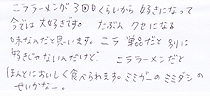 ニララーメンが3回目くらいから好きになって
今では大好きです。たぶんクセになる
味なんだと思います。ニラ単品だと別に
好きじゃないんだけど、ニララーメンだと
ほんとにおいしく食べられます。ミミガーのミミダシの
せいかなー。